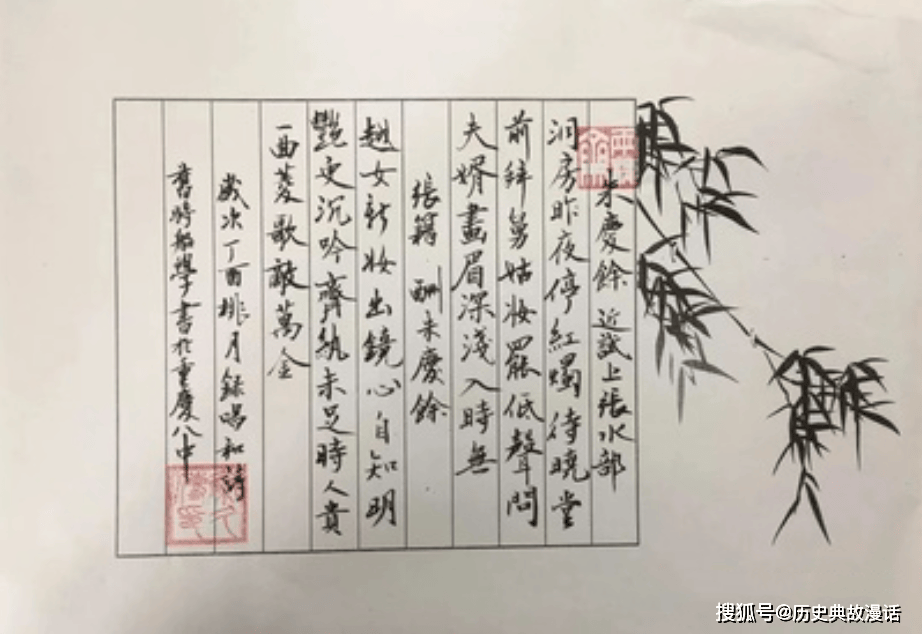 朱慶餘 近試上張水部
洞房昨夜停紅燭待曉堂
前拜舅姑妝罷低聲問
夫婿畫眉深淺入時無
張籍 酬朱慶餘
越女新妝出鏡心自知明
艷更沉吟齊紈未足時人貴
一曲菱歌敵萬金
歲次丁酉桃月錄唱和詩
學書於重慶八中
搜狐号@历史典故漫话